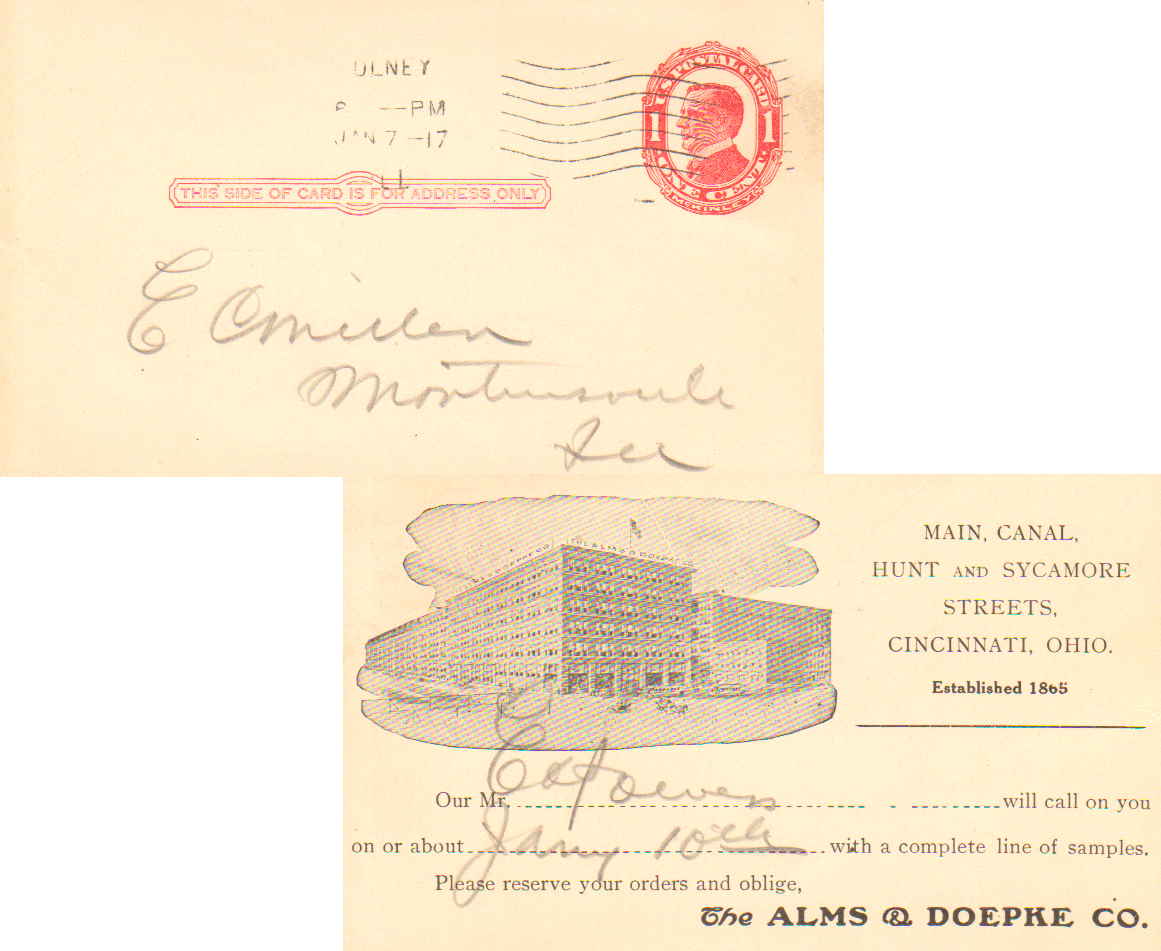 OLNEY
P --PM
JAN 7 -17
THIS SIDE OF CARD IS FOR ADDRESS ONLY
U.S. POSTAL CARD
1 1
ONE CENT
McKINLEY
E C Millen
Montersville
Ill
THE ALMS & DOEPKE CO.
MAIN, CANAL,
HUNT AND SYCAMORE
STREETS,
CINCINNATI, OHIO.
Established 1865
Our Mr. Ed Powers will call on you
on or about Jany 10th with a complete line of samples.
Please reserve your orders and oblige,
The ALMS & DOEPKE CO.